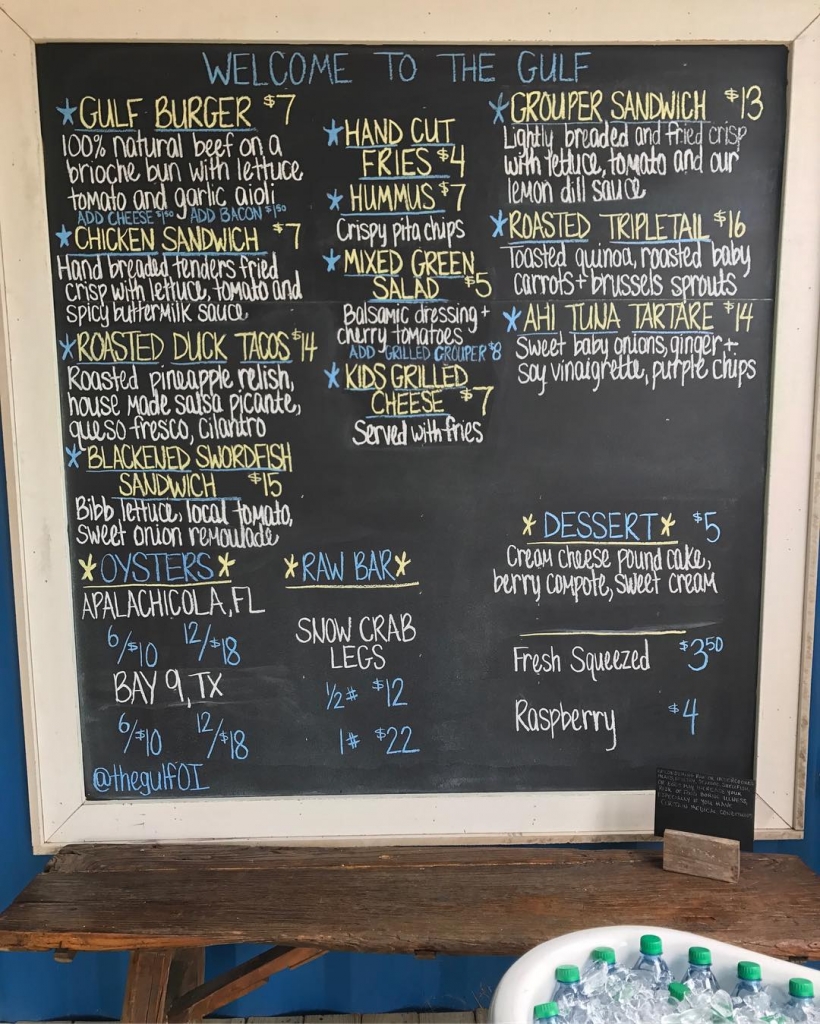 WELCOME TO THE GULF
GULF BURGER $7
100% natural beef on a
brioche bun with lettuce
tomato and garlic aioli
ADD CHEESE $1.50 / ADD BACON $1.50
CHICKEN SANDWICH $7
Hand breaded tenders fried
crisp with lettuce, tomato and
spicy buttermilk sauce
ROASTED DUCK TACOS $14
Roasted pineapple relish,
house made salsa picante,
queso fresco, cilantro
BLACKENED SWORDFISH
SANDWICH $15
Bibb lettuce, local tomato,
sweet onion remoulade
HAND CUT
FRIES $4
HUMMUS $7
Crispy pita chips
MIXED GREEN
SALAD $5
Balsamic dressing +
cherry tomatoes
ADD GRILLED GROUPER $8
KIDS GRILLED
CHEESE $7
Served with fries
GROUPER SANDWICH $13
Lightly breaded and fried crisp
with lettuce, tomato and our
lemon dill sauce
ROASTED TRIPLETAIL $16
Toasted quinoa, roasted baby
carrots + brussels sprouts
AHI TUNA TARTARE $14
Sweet baby onions, ginger +
soy vinaigrette, purple chips
OYSTERS
APALACHICOLA, FL
6/$10 12/$18
BAY 9, TX
6/$10 12/$18
@thegulfOI
RAW BAR
SNOW CRAB
LEGS
1/2# $12
1# $22
DESSERT $5
Cream cheese pound cake,
berry compote, sweet cream
Fresh Squeezed $3.50
Raspberry $4